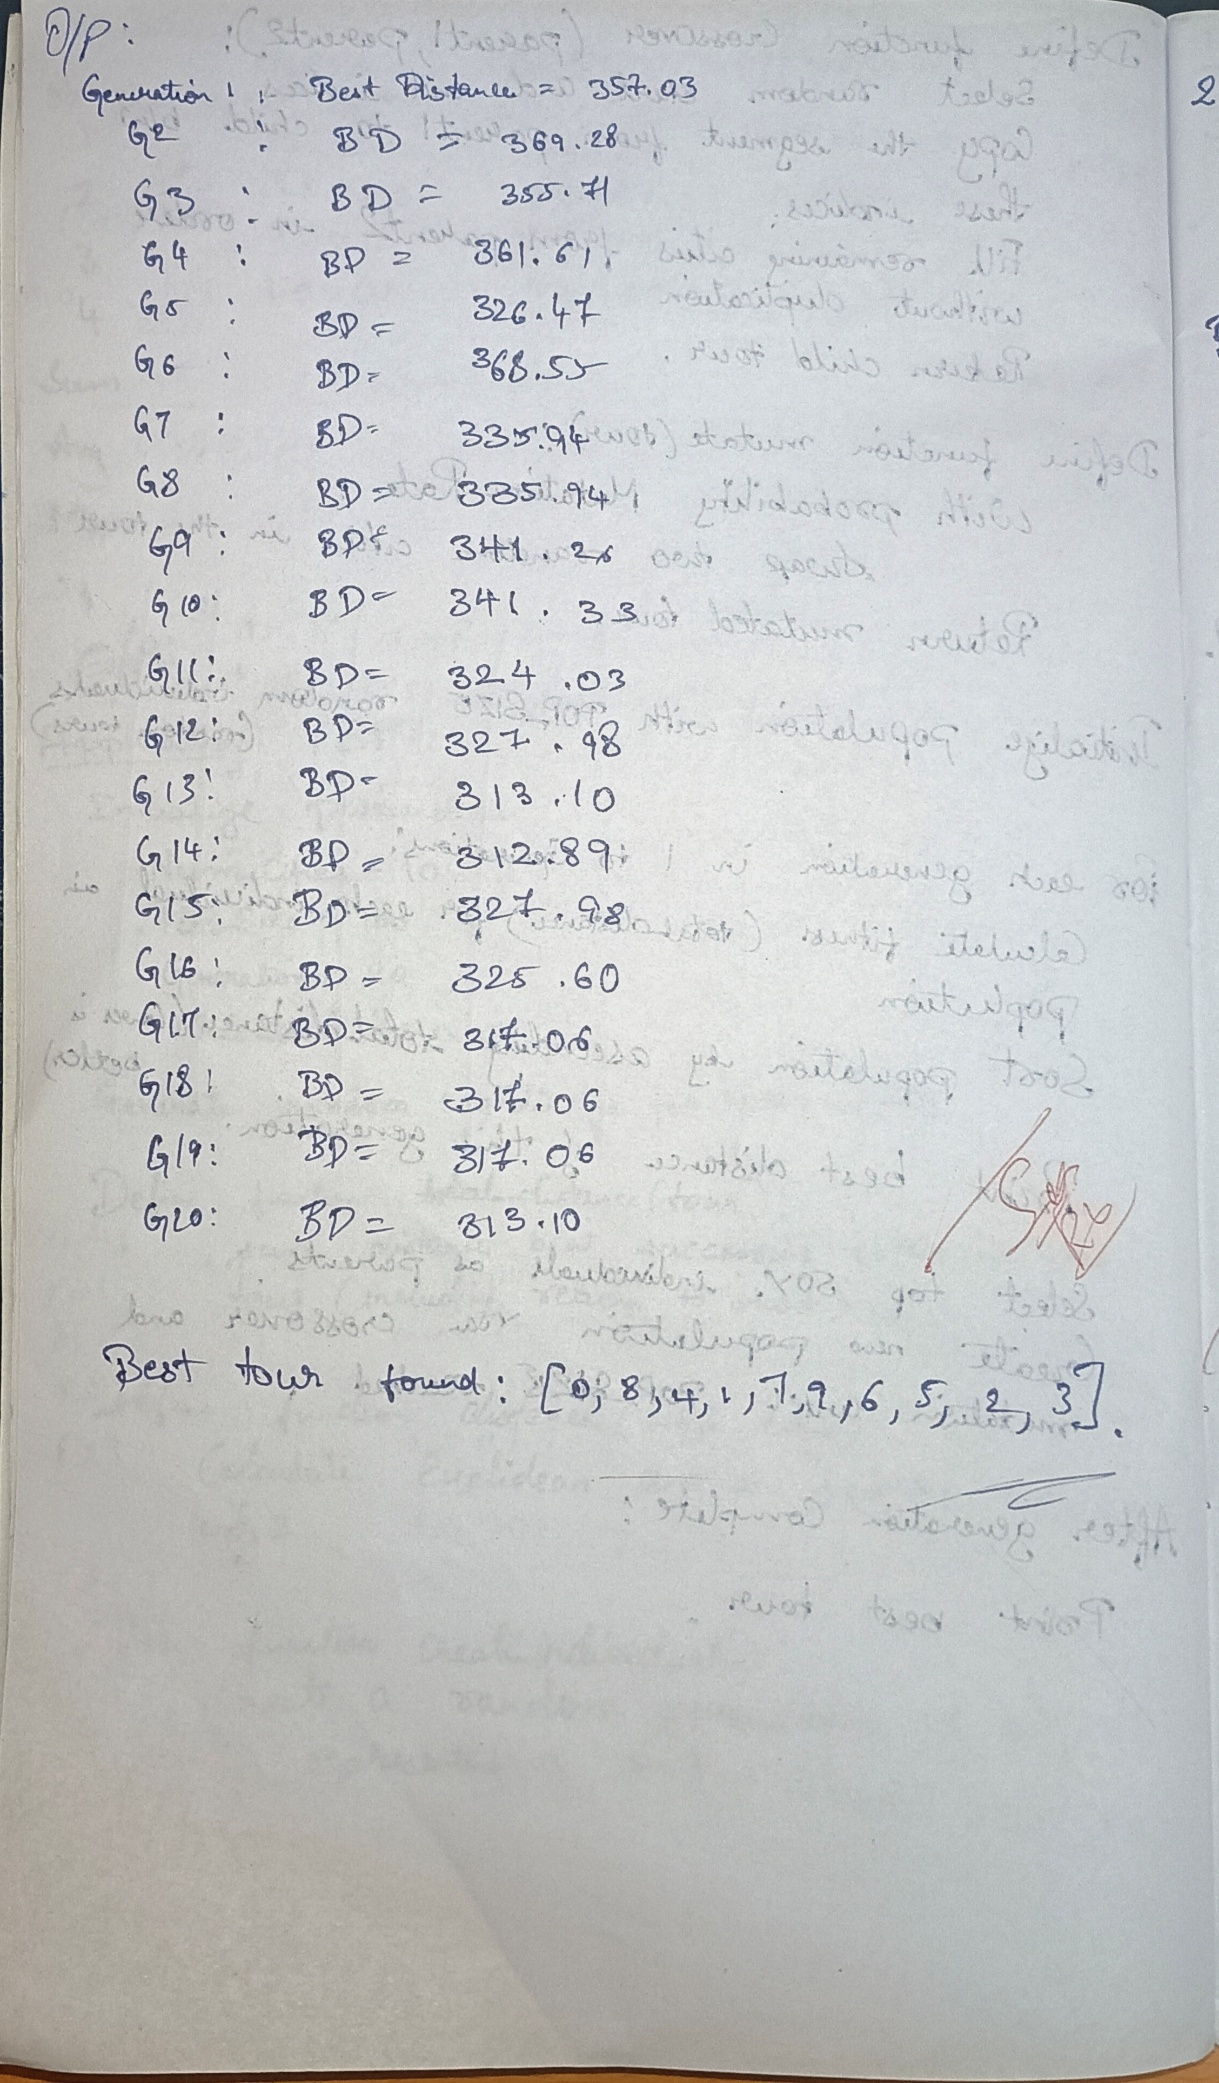 O/P:
Generation 1 : Best Distance = 357.03
G2 : BD = 369.28
G3 : BD = 355.71
G4 : BD = 361.61
G5 : BD = 326.47
G6 : BD = 368.55
G7 : BD = 335.94
G8 : BD = 335.94
G9 : BD = 341.26
G10: BD = 341.33
G11: BD = 324.03
G12: BD = 327.98
G13: BD = 313.10
G14: BD = 312.89
G15: BD = 327.98
G16: BD = 325.60
G17: BD = 317.06
G18: BD = 317.06
G19: BD = 317.06
G20: BD = 313.10
Best tour found: [0, 8, 4, 1, 7, 9, 6, 5, 2, 3].
2